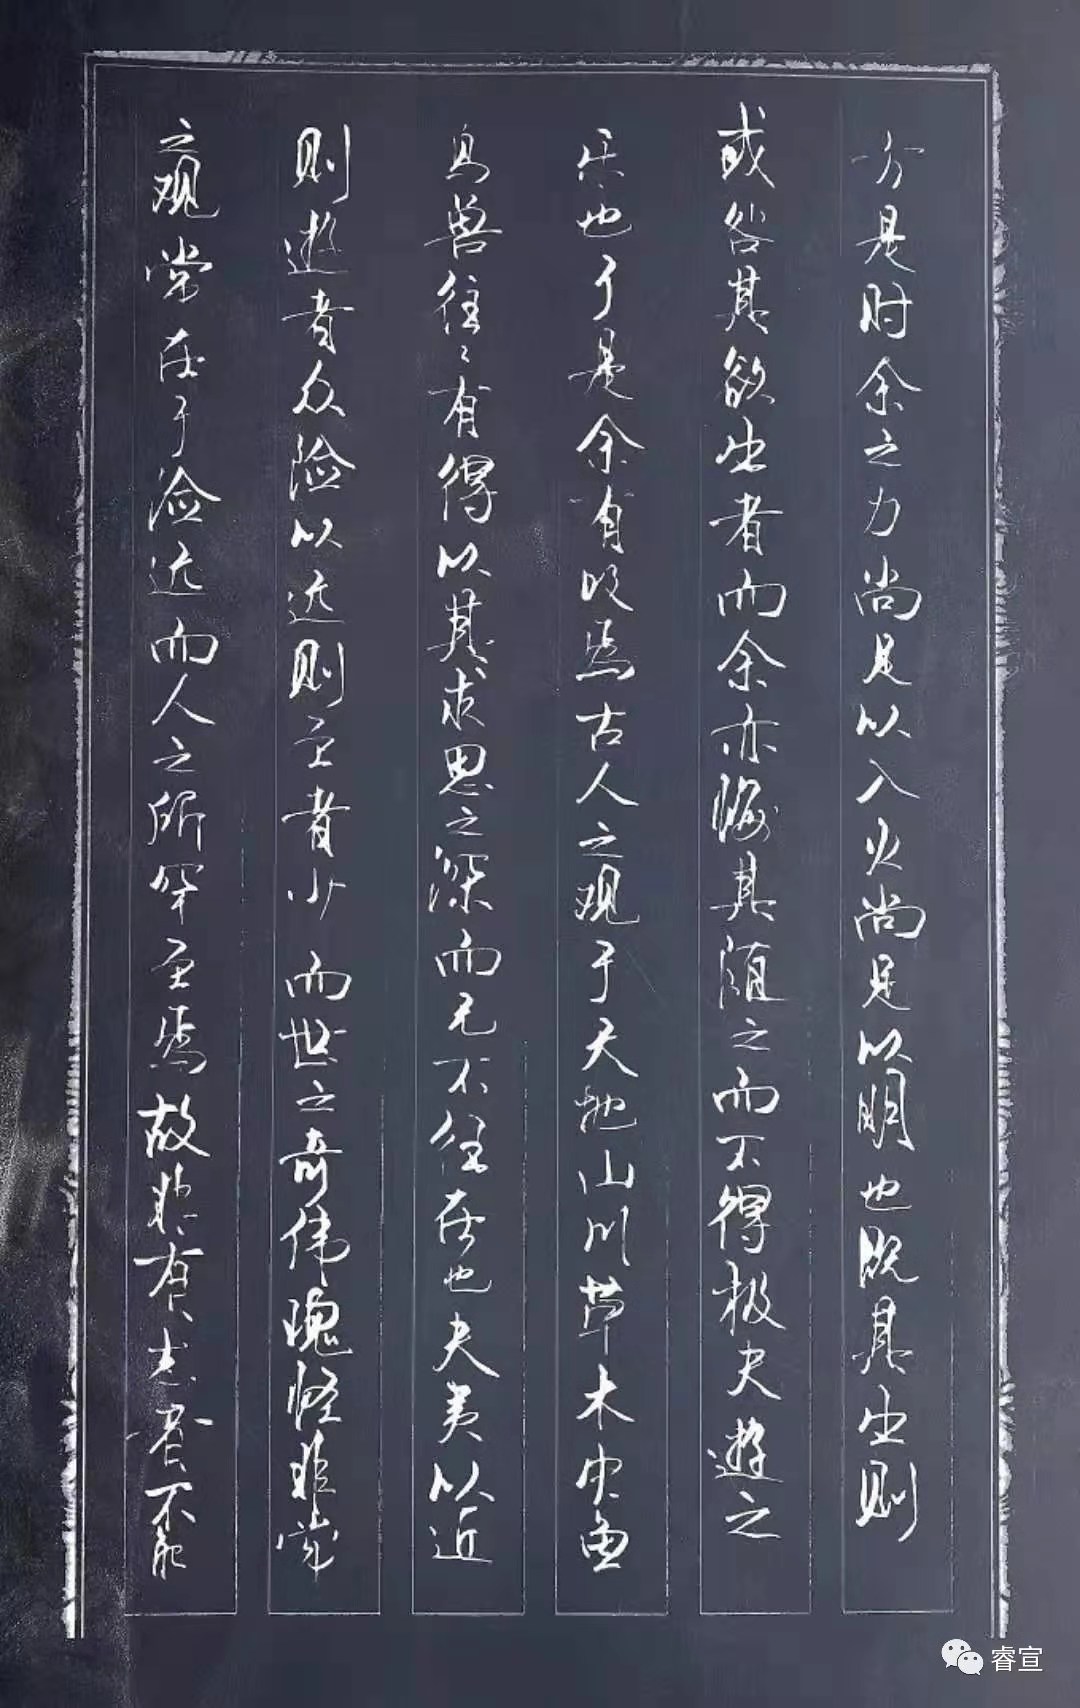 方是时余之力尚足以入火尚足以明也既其出则
或咎其欲出者而余亦悔其随之而不得极夫遊之
乐也于是余有叹焉古人之观于天地山川草木虫鱼
鸟兽往々有得以其求思之深而无不往在也夫夷以近
则遊者众险以远则至者少而世之奇伟瑰怪非常
之观常在于险远而人之所罕至焉故非有志者不能
睿宣